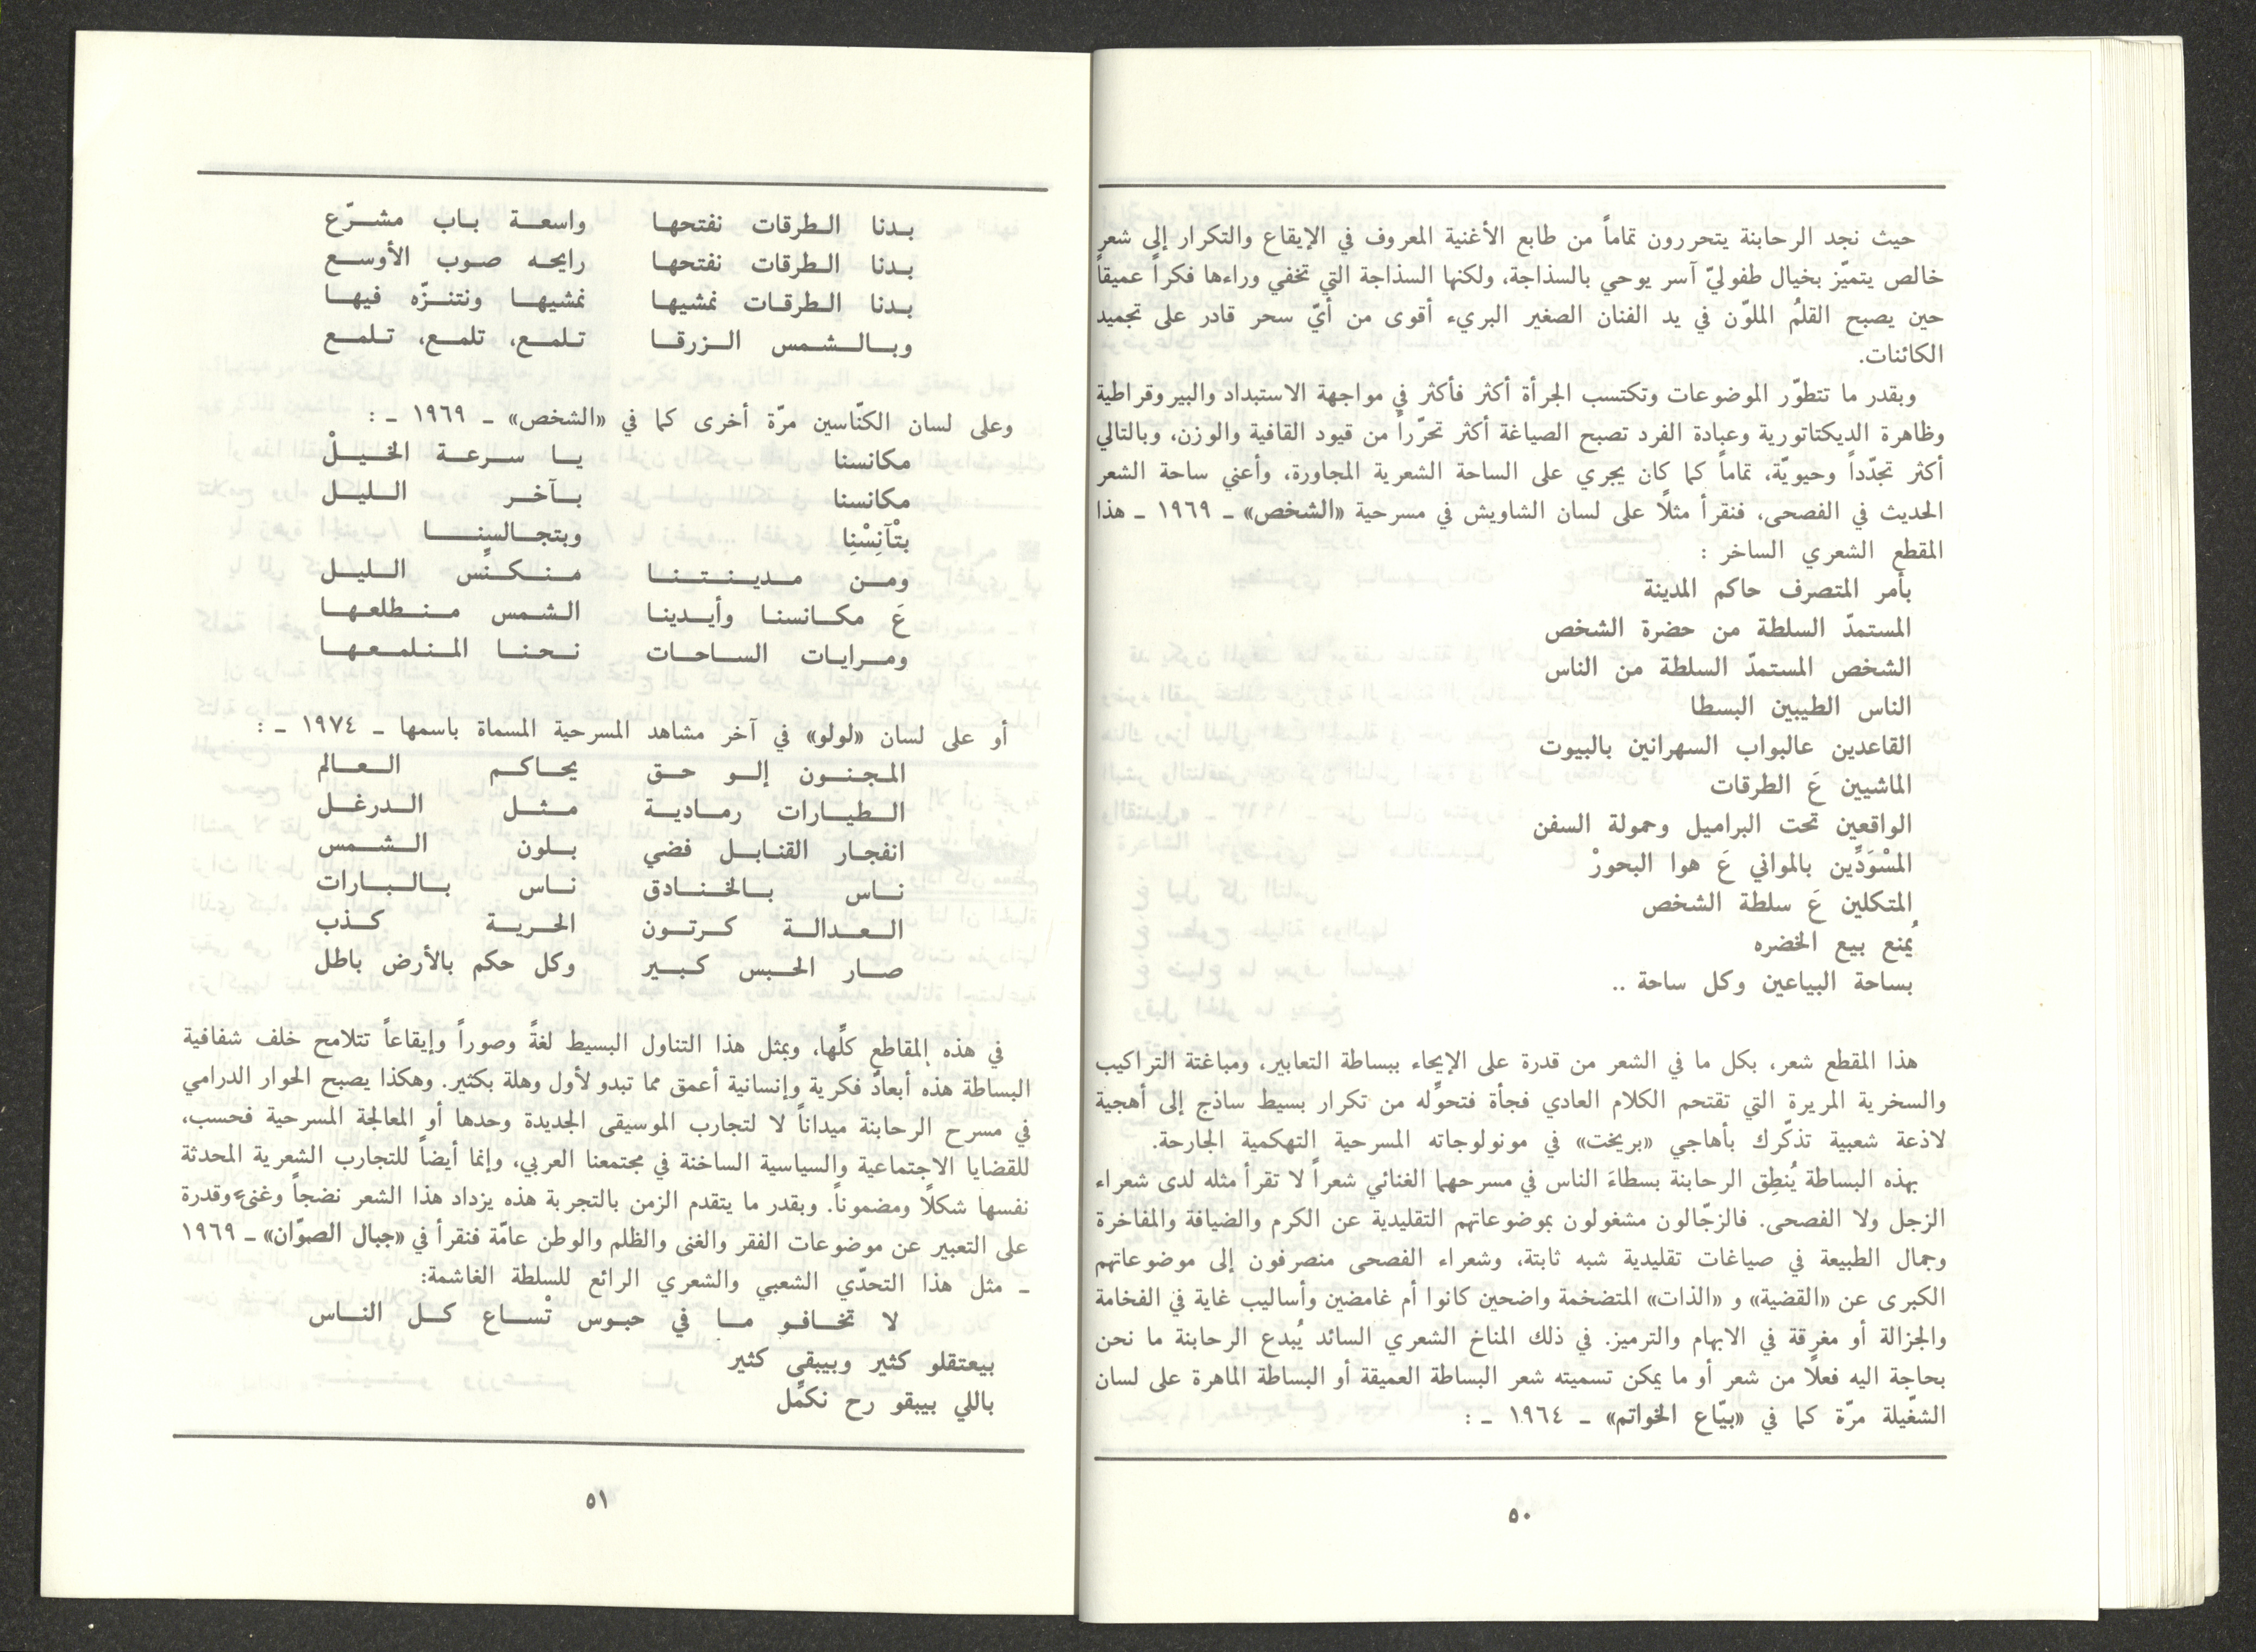 حيث نجد الرحابنة يتحررون تماماً من طابع الأغنية المعروف في الإيقاع والتكرار إلى شعر
خالص يتميّز بخيال طفوليّ آسر يوحي بالسذاجة، ولكنها السذاجة التي تخفي وراءها فكراً عميقاً
حين يصبح القلمُ الملوّن في يد الفنان الصغير البريء أقوى من أيّ سحر قادر على تجميد
الكائنات.
وبقدر ما تتطوّر الموضوعات وتكتسب الجرأة أكثر فأكثر في مواجهة الاستبداد والبيروقراطية
وظاهرة الديكتاتورية وعبادة الفرد تصبح الصياغة أكثر تحرّراً من قيود القافية والوزن، وبالتالي
أكثر تجدّداً وحيويّة، تماماً كما كان يجري على الساحة الشعرية المجاورة، وأعني ساحة الشعر
الحديث في الفصحى، فنقرأ مثلاً على لسان الشاويش في مسرحية «الشخص» ـ ١٩٦٩ ـ هذا
المقطع الشعري الساخر :
بأمر المتصرف حاكم المدينة
المستمدّ السلطة من حضرة الشخص
الشخص المستمدّ السلطة من الناس
الناس الطيبين البسطا
القاعدين عالبواب السهرانين بالبيوت
الماشيين عَ الطرقات
الواقعين تحت البراميل وحمولة السفن
المسْوَدِّين بالمواني عَ هوا البحورْ
المتكلين عَ سلطة الشخص
يُمنع بيع الخضره
بساحة البياعين وكل ساحة ..
هذا المقطع شعر، بكل ما في الشعر من قدرة على الإيحاء ببساطة التعابير، ومباغتة التراكيب
والسخرية المريرة التي تقتحم الكلام العادي فجأة فتحوِّله من تكرار بسيط ساذج إلى أهجية
لاذعة شعبية تذكّرك بأهاجي «بريخت» في مونولوجاته المسرحية التهكمية الجارحة.
بهذه البساطة يُنطِق الرحابنة بسطاءَ الناس في مسرحهما الغنائي شعراً لا تقرأ مثله لدى شعراء
الزجل ولا الفصحى. فالزجّالون مشغولون بموضوعاتهم التقليدية عن الكرم والضيافة والمفاخرة
وجمال الطبيعة في صياغات تقليدية شبه ثابتة، وشعراء الفصحى منصرفون إلى موضوعاتهم
الكبرى عن «القضية» و «الذات» المتضخمة واضحين كانوا أم غامضين وأساليب غاية في الفخامة
والجزالة أو مغرقة في الابهام والترميز. في ذلك المناخ الشعري السائد يُبدع الرحابنة ما نحن
بحاجة اليه فعلاً من شعر أو ما يمكن تسميته شعر البساطة العميقة أو البساطة الماهرة على لسان
الشغّيلة مرّة كما في «بيّاع الخواتم» ـ ١٩٦٤ ـ :
٥٠
بدنا الطرقات نفتحها واسعة باب مشرّع
بدنا الطرقات نفتحها رايحه صوب الأوسع
بدنا الطرقات نمشيها نمشيها ونتنزّه فيها
وبالشمس الزرقا تلمع، تلمع، تلمع
وعلى لسان الكنّاسين مرّة أخرى كما في «الشخص» ـ ١٩٦٩ ـ :
مكانسنا يا سرعة الخيلْ
مكانسنا بآخر الليل
بتْآنِسْنِا وبتجالسنا
ومن مدينتنا منكنّس الليل
عَ مكانسنا وأيدينا الشمس منطلعها
ومرايات الساحات نحنا المنلمعها
أو على لسان «لولو» في آخر مشاهد المسرحية المسماة باسمها ـ ١٩٧٤ ـ :
المجنون إلو حق يحاكم العالم
الطيارات رمادية مثل الدرغل
انفجار القنابل فضي بلون الشمس
ناس بالخنادق ناس بالبارات
العدالة كرتون الحرية كذب
صار الحبس كبير وكل حكم بالأرض باطل
في هذه المقاطع كلِّها، وبمثل هذا التناول البسيط لغةً وصوراً وإيقاعاً تتلامح خلف شفافية
البساطة هذه أبعادٌ فكرية وإنسانية أعمق مما تبدو لأول وهلة بكثير. وهكذا يصبح الحوار الدرامي
في مسرح الرحابنة ميداناً لا لتجارب الموسيقى الجديدة وحدها أو المعالجة المسرحية فحسب،
للقضايا الاجتماعية والسياسية الساخنة في مجتمعنا العربي، وإنما أيضاً للتجارب الشعرية المحدثة
نفسها شكلاً ومضموناً. وبقدر ما يتقدم الزمن بالتجربة هذه يزداد هذا الشعر نضجاً وغنىً وقدرة
على التعبير عن موضوعات الفقر والغنى والظلم والوطن عامّة فنقرأ في «جبال الصوّان» ـ ١٩٦٩
ـ مثل هذا التحدّي الشعبي والشعري الرائع للسلطة الغاشمة:
لا تخافو ما في حبوس تْساع كل الناس
بيعتقلو كثير وبيبقى كثير
باللي بيبقو رح نكمِّل
٥١